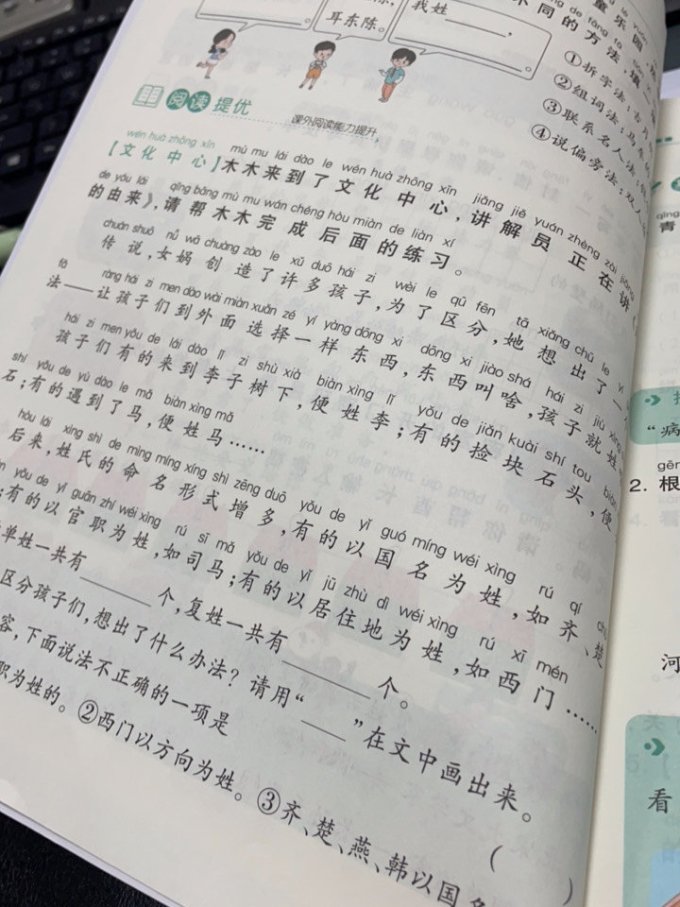 我姓______，
耳东陈。
童乐园
不同的方法，填
①拆字法：
②组词法：
③联系名人法：
④说偏旁法：双人
阅读 提优
课外阅读能力提升
wén huà zhōng xīn mù mu lái dào le wén huà zhōng xīn, jiǎng jiě yuán zhèng zài jiǎng
【文化中心】木木来到了文化中心，讲解员正在讲
de yóu lái qǐng bāng mù mu wán chéng hòu miàn de liàn xí
的由来》，请帮木木完成后面的练习。
chuán shuō nǚ wā chuàng zào le xǔ duō hái zi wèi le qū fēn tā xiǎng chū le yì
传说，女娲创造了许多孩子，为了区分，她想出了一
fǎ ràng hái zi men dào wài miàn xuǎn zé yí yàng dōng xi dōng xi jiào shá hái zi jiù xìng
法——让孩子们到外面选择一样东西，东西叫啥，孩子就姓
hái zi men yǒu de lái dào lǐ zi shù xià biàn xìng lǐ yǒu de jiǎn kuài shí tou biàn
孩子们有的来到李子树下，便姓李；有的捡块石头，便
shí yǒu de yù dào le mǎ biàn xìng mǎ
石；有的遇到了马，便姓马……
hòu lái xìng shì de mìng míng xíng shì zēng duō yǒu de yǐ guó míng wéi xìng rú qí chǔ
后来，姓氏的命名形式增多，有的以国名为姓，如齐、楚
yǒu de yǐ guān zhí wéi xìng rú sī mǎ yǒu de yǐ jū zhù dì wéi xìng rú xī mén
；有的以官职为姓，如司马；有的以居住地为姓，如西门……
单姓一共有______个，复姓一共有______个。
区分孩子们，想出了什么办法？请用“____”在文中画出来。
容，下面说法不正确的一项是 （ ）
职为姓的。②西门以方向为姓。③齐、楚、燕、韩以国名
青
“病
2. 根
河
看